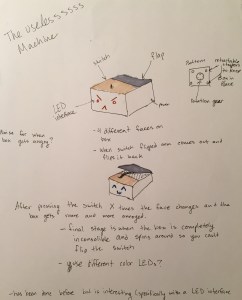 The uselesssssss
Machine
switch
flap
Buttons
LED
interface
arm
rotation gear
noise for when
box gets angry
- 4 different faces on
box
- when switch flipped arm comes out and
flips it back
After pressing the switch X times the face changes and the
box gets more and more enraged.
- final stage is when the box is completely
inconsolable and spins around so you can't
flip the switch
- use different color LEDs?
- has been done before but is interesting specifically with a LED interface